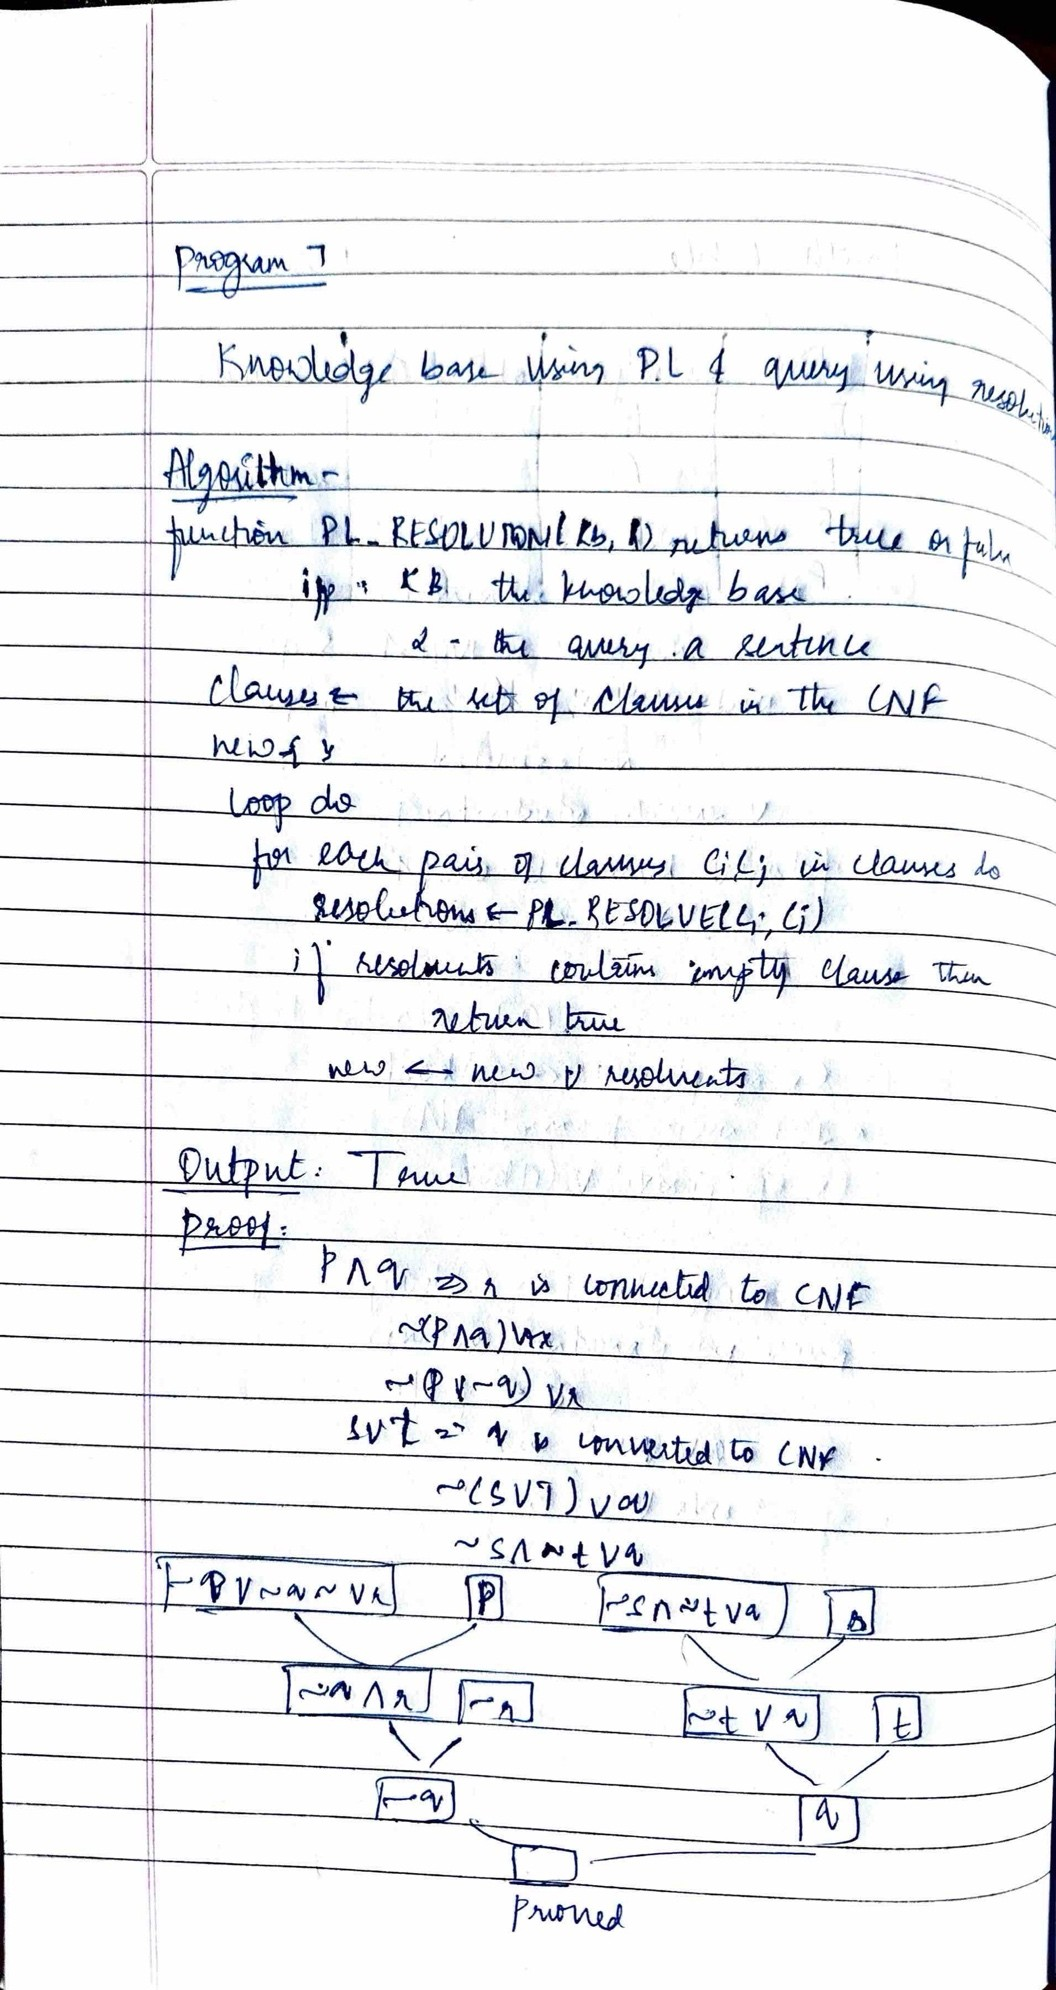 Program 7
Knowledge base using P.L & query using resolution
Algorithm -
function PL_RESOLUTION(kb, α) returns true or false
i/p : KB the knowledge base
α - the query a sentence
Clauses ← the set of clauses in the CNF
new { }
loop do
for each pair of clauses Ci Cj in clauses do
resolutions ← PL_RESOLVE(Ci, Cj)
if resolvents contains empty clause then
return true
new ← new ∪ resolvents
Output: True
Proof:
P ∧ q => r is connected to CNF
~(P ∧ q) ∨ r
~(P ∨ ~q) ∨ r
S ∨ t => q is converted to CNF
~(S ∨ T) ∨ q
~S ∧ ~t ∨ q
~P ∨ ~q ~ ∨ r P ~S ∧ ~t ∨ q s
~q ∧ r ~r ~t ∨ q t
~q q
Proved